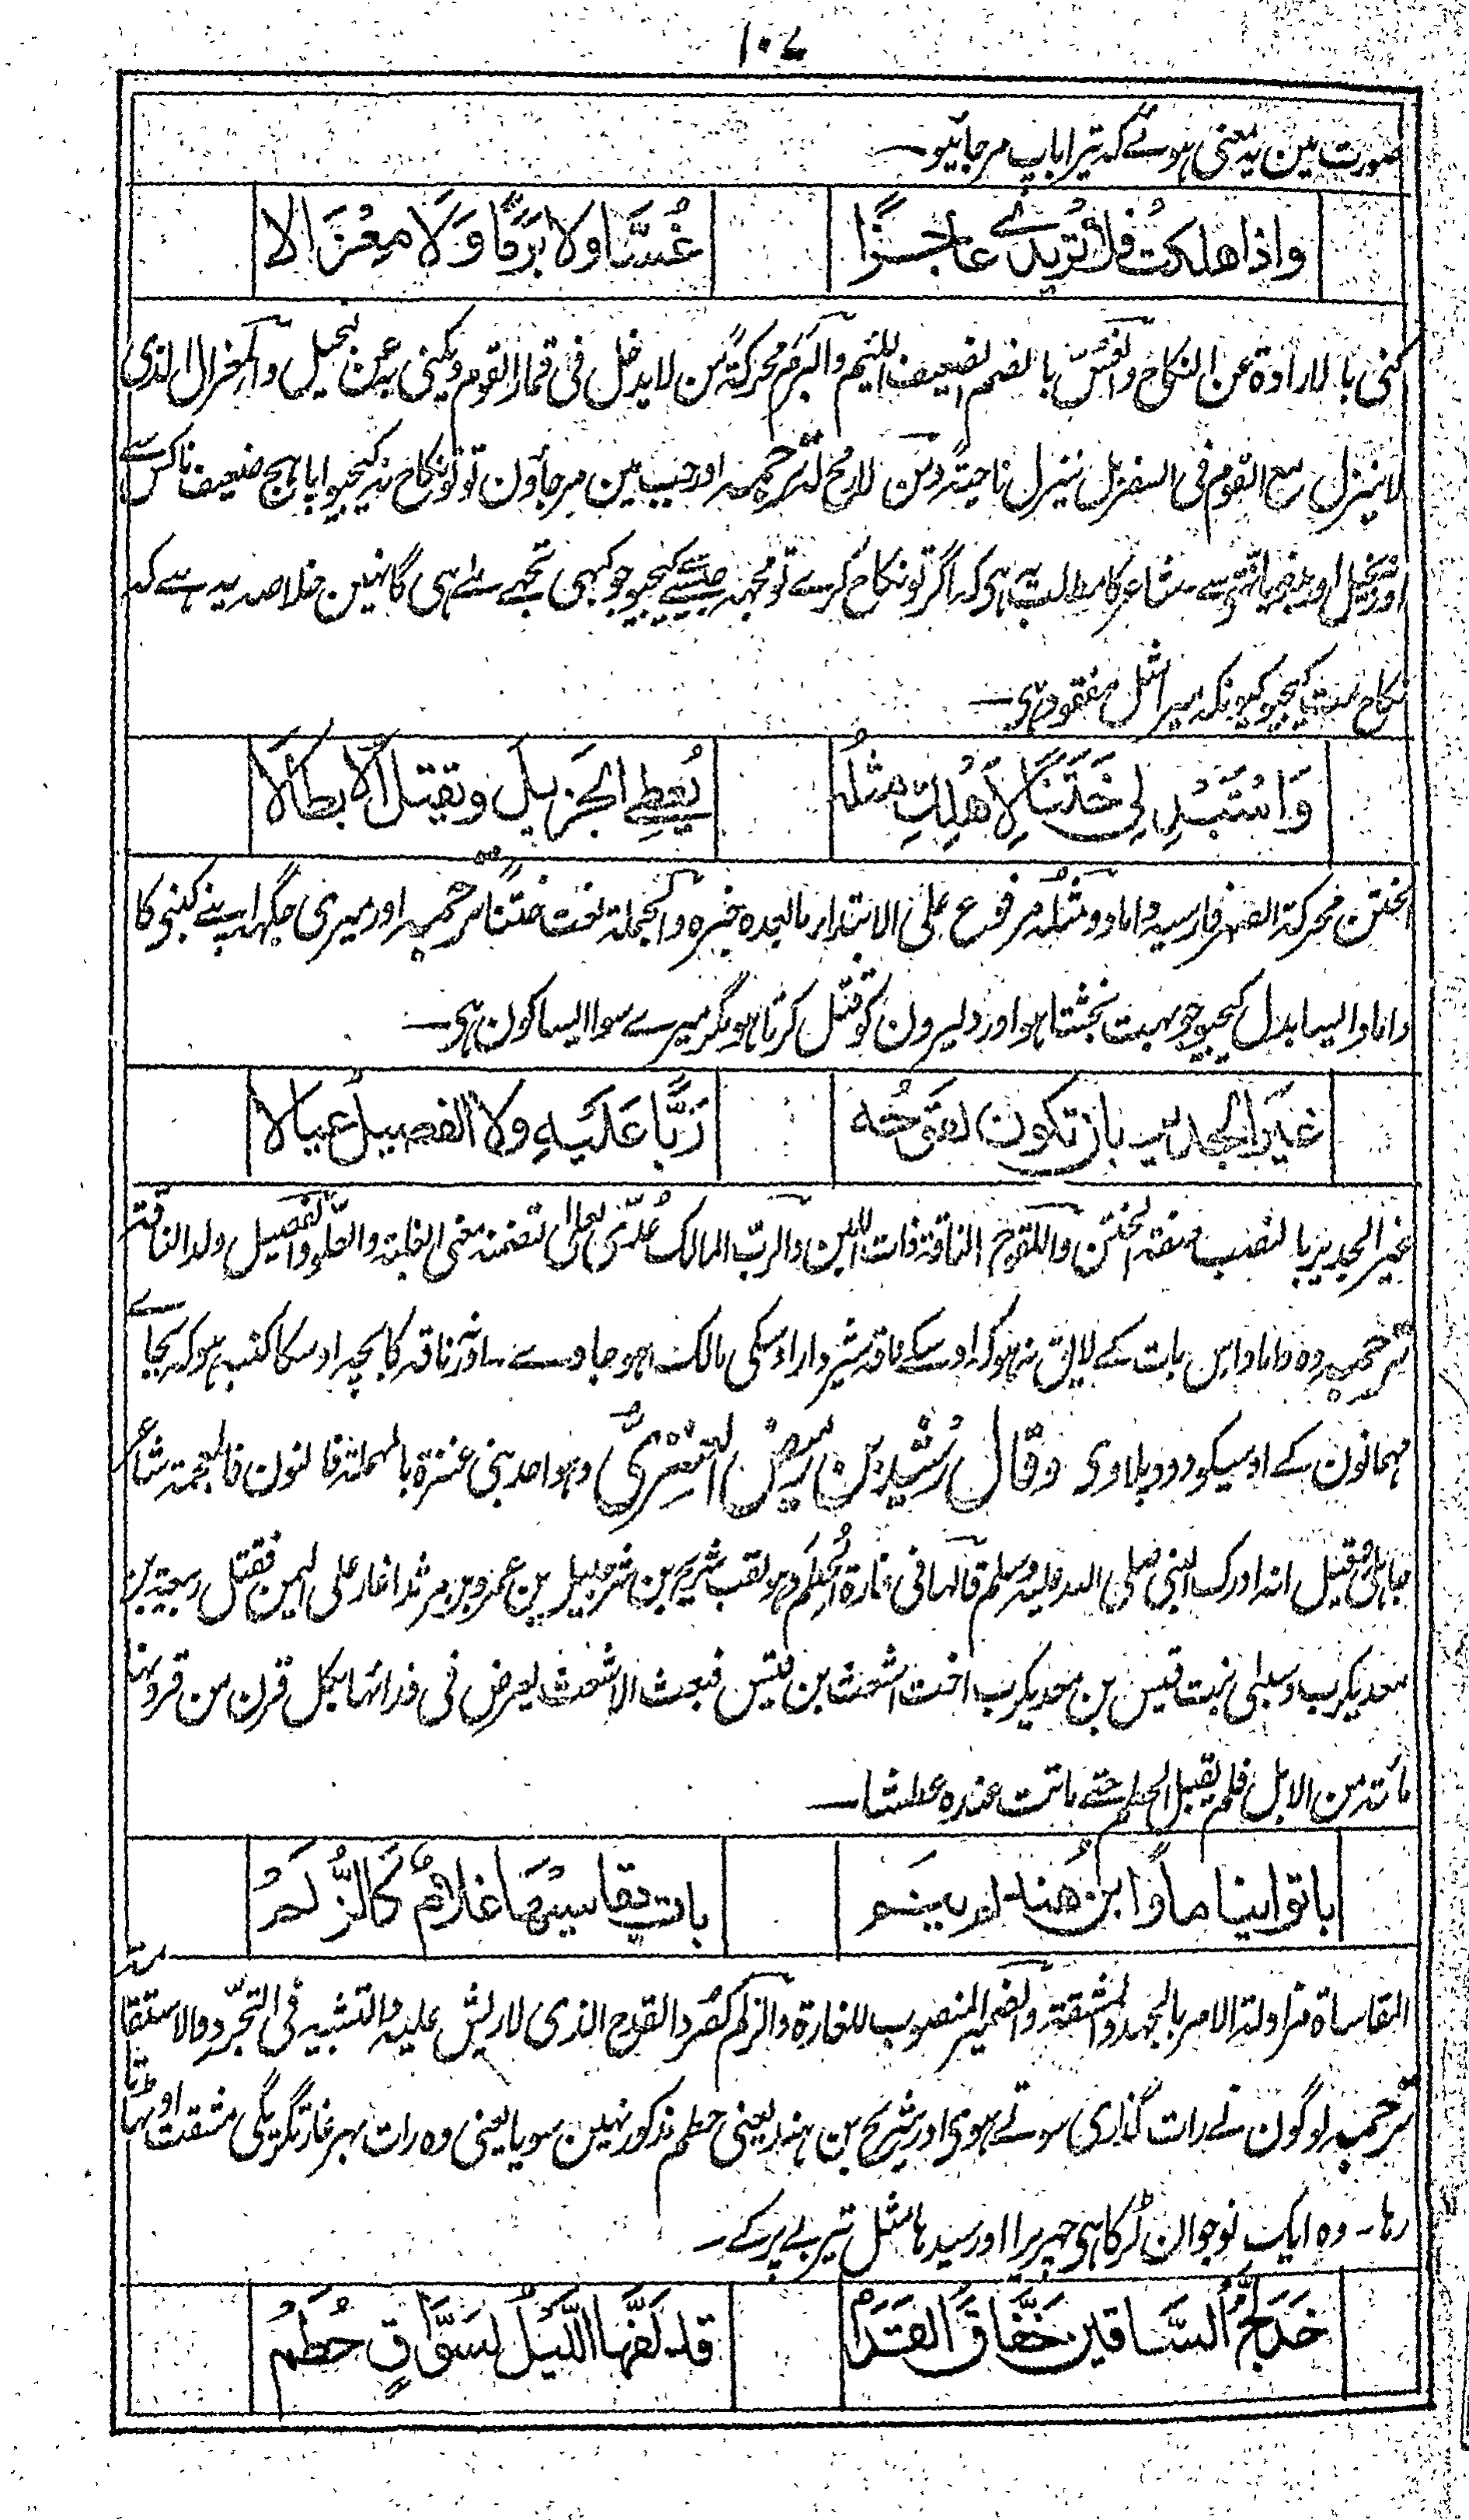 ۱۰۷
صورت مین یہ معنی ہونگے کہ تیرا باپ مر جائیو
واذا هلكت فلا تُريدے عاجزًا غُسَّا ولا بَرَمًا وَلَا مِعْزَالا
کنی بالارادۃ عن النکاح والغسّ بالضم الضعیف اللئیم والبرم محرکۃً من لا یدخل فی قمار القوم ویکنی بہ عن بخیل والمعزال الذی
لا ینزل مع القوم فی السفر بل ینزل ناحیۃً ومن لا رمح لہ ترجمہ اور جب مین مر جاؤن تو تو نکاح نہ کیجیو اپاہج ضعیف ناکس سے
اور بخیل اور سے شاعر کا مطلب یہ ہی کہ اگر تو نکاح کرے تو مجھ جیسے کیجیو جو کبھی تجھے ملے ہی گا نہین خلاصہ یہ ہے کہ
نکاح مت کیجیو کیونکہ میرا مثل مفقود ہی
وَاسْتَبْدِلِی خَتَنًا لِاَهْلِكِ مثلُہ یُعطِی الجَزیلَ ویقتل الابطالا
الختن محرکۃ الصہر فارسیہ داماد ومثلُہ مرفوع علی الابتدار ما بعدہ خبرہ والجملۃ نعت ختنًا ترجمہ اور میری جگہہ اپنے کنبی کا
داماد ایسا بدل کیجیو جو بہت بخشتا ہو اور دلیرون کو قتل کرتا ہو مگر میرے سوا ایسا کون ہی
غیرَ الجدیرِ بان تكون لَقوحُه رَبًّا عَلَیهِ ولا الفصیلُ عیالا
غیر الجدیر بالنصب صفۃ الختن واللقوح الناقۃ ذات اللبن والربّ المالک عُدّی بعلی لتضمنہ معنی الغلبۃ والعلو والفصیل ولد الناقۃ
ترجمہ وہ داماد اس بات کے لایق نہ ہو کہ اوسکے ناقہ شیردار اوسکی مالک ہو جاوے اور ناقہ کا بچہ اوسکا کنبہ ہو کہ بجاے
مہمانون کے اوسیکو دودہ پلاوی وقال رُشَید بن رُمَیض العنزیُّ وہو احد بنی عنزۃ بالمہملۃ فالنون فالمعجمۃ شاعر
جاہلی وقیل انہ ادرک النبی صلی اللہ علیہ وسلم قالہا فی غارۃ الحُطَم وہو لقب شریح بن شرحبیل بن عمرو بن مرثد اغار علی الیمن فقتل ربیعۃ بن
معدیکرب وسبی بنت قیس بن معدیکرب اخت اشعث بن قیس فبعث الاشعث یعرض فی فدائہا بکل قرن من قرونہا
مائۃ من الابل فلم یقبل الحطم حتے ماتت عندہ عطشا
باتوا نیاما وابن هند لم ینم بات یقاسیها غلامٌ كالزُّلَم
المقاساۃ مزاولۃ الامر بالجہد والمشقۃ والضمیر المنصوب للغارۃ والزلم کصُرد القدح الذی لا ریش علیہ والتشبیہ فی التجرّد والاستقامۃ
ترجمہ لوگون نے رات گذاری سوتے ہوی اور شریح بن ہند یعنی حطم مذکور نہین سویا یعنی وہ رات بہر غارتگری کی مشقت اوٹھاتا
رہا۔ وہ ایک نوجوان لڑکا ہی چہریرا اور سیدھا مثل تیر بے پر کے۔
خَدَلَّجُ السَّاقینِ خَفَّاقُ القَدَم قد لَفَّها اللَّیلُ بسَوَّاقٍ حُطَم